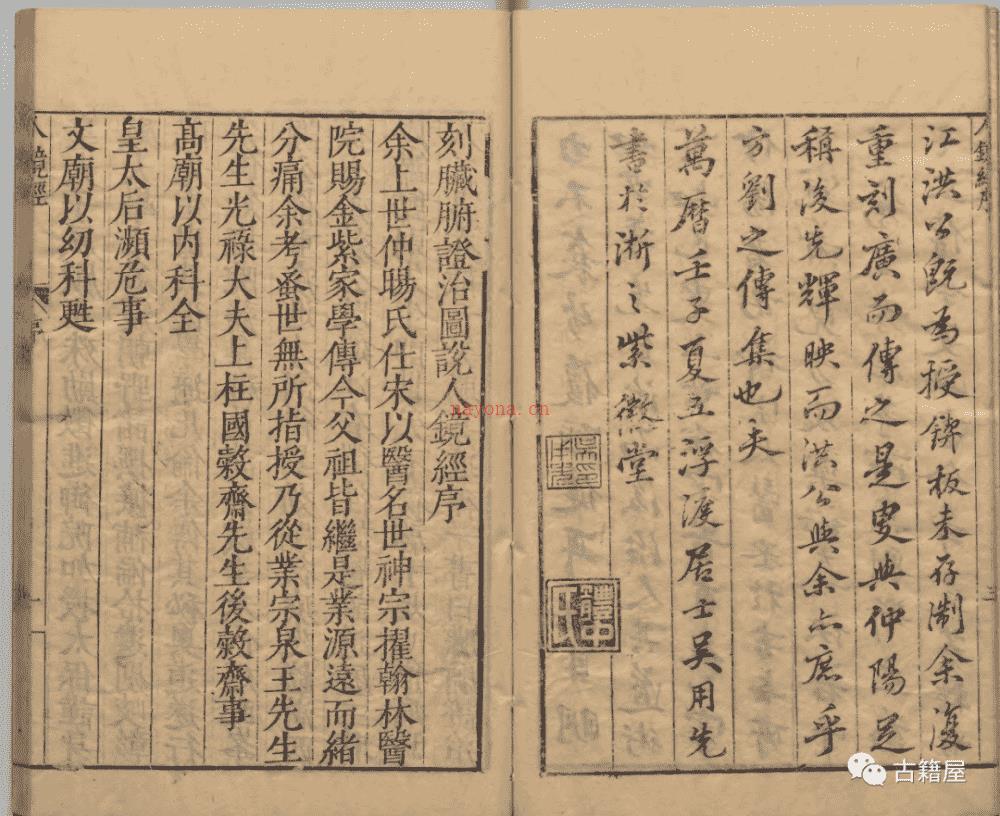 江洪公既為授鋟板未存制余復
重刻廣而傳之是叟與仲陽足
稱後先輝映而洪公與余亦庶乎
方劉之傳集也夫
萬曆壬子夏五浮渡居士吳用先
書於浙之紫微堂
刻臟腑證治圖說人鏡經序
余上世仲暘氏仕宋以醫名世神宗擢翰林醫
院賜金紫家學傳今父祖皆繼是業源遠而緒
分痛余考蚤世無所指授乃從業宗泉王先生
先生光祿大夫上柱國穀齋先生後穀齋事
高廟以內科全
皇太后瀕危事
文廟以幼科甦
人鏡經
序
nayona.cn
古籍屋